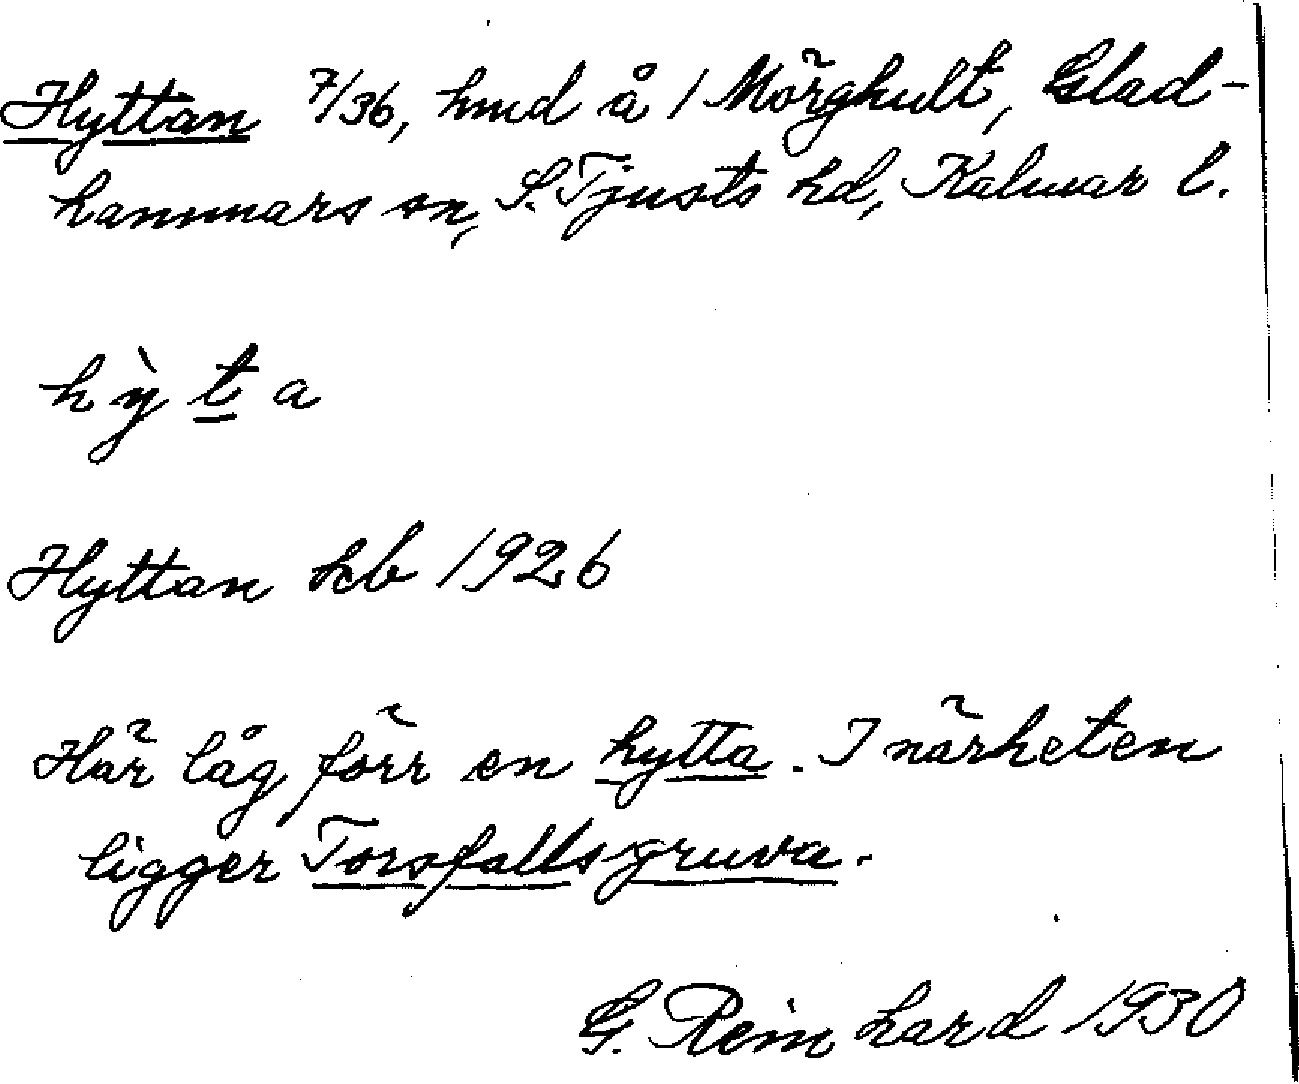 Hyttan 7/36, hmd å 1 Mörghult, Glad-
hammars sn, S. Tjusts hd, Kalmar l.
hỳ t a
Hyttan kb 1926
Här låg förr en hytta. I närheten
ligger Torsfallsgruva.
G. Reinhard 1930